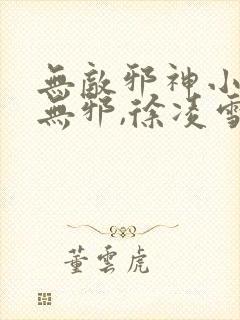 無敵邪神小
無邪,徐凌雪
董雲虎